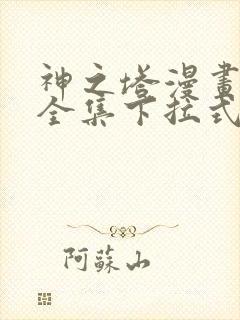 神之塔漫畫
全集下拉式
阿蘇山